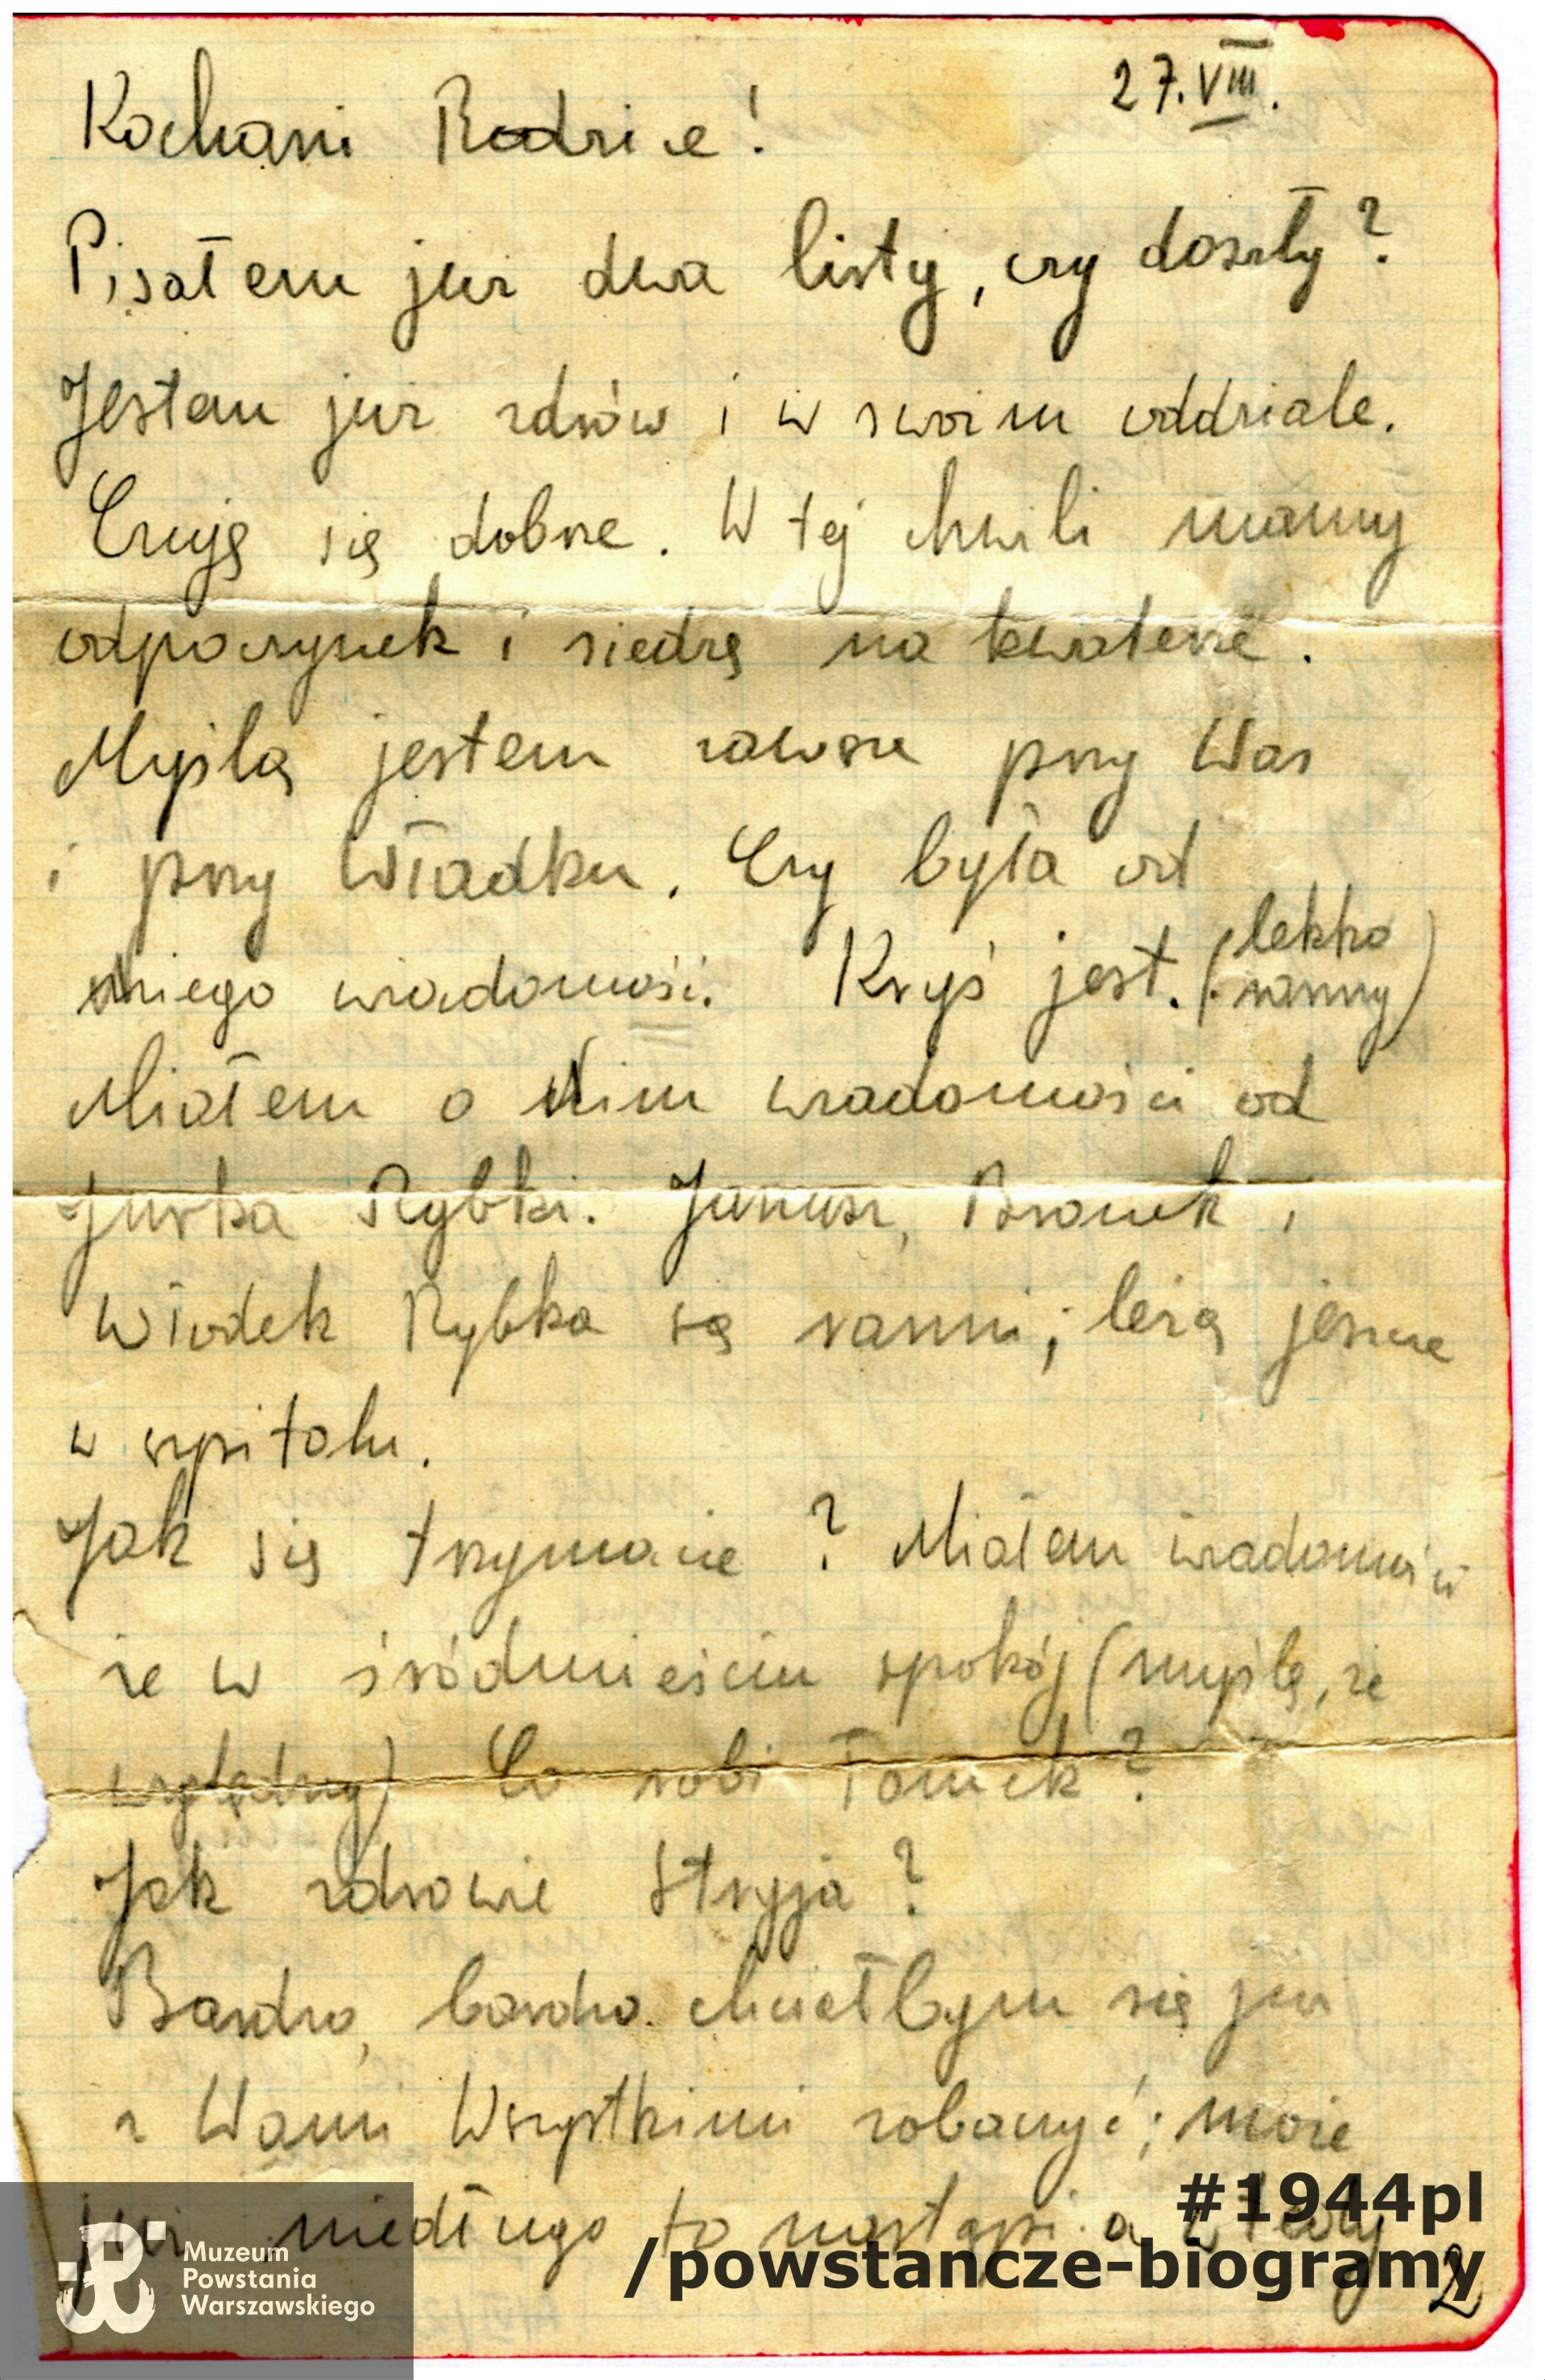 27.VIII.
Kochani Rodzice!
Pisałem już dwa listy, czy doszły?
Jestem już zdrów i w swoim oddziale.
Czuję się dobrze. W tej chwili mamy
odpoczynek i siedzę na kwaterze.
Myślą jestem zawsze przy Was
i przy Władku. Czy była od
Niego wiadomość. Kryś jest. (lekko
ranny)
Miałem o Nim wiadomości od
Jurka Rybki. Janusz, Bronek i
Włodek Rybka są ranni; leżą jeszcze
w szpitalu.
Jak się trzymacie? Miałem wiadomości
że w śródmieściu spokój (myślę, że
względny) Co robi Tomek?
Jak zdrowie Stryja?
Bardzo, bardzo chciałbym się już
z Wami Wszystkimi zobaczyć; może
już niedługo to nastąpi a wtedy
2
Muzeum
Powstania
Warszawskiego
#1944pl
/powstancze-biogramy